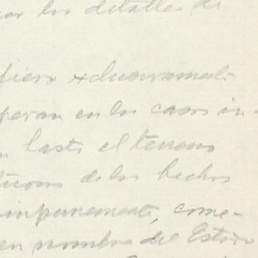 por los detalles de
fiero exclusivamente
peran en los casos in-
hasta el terreno
ticono de los hechos
impunemente, come-
en nombre del Estado